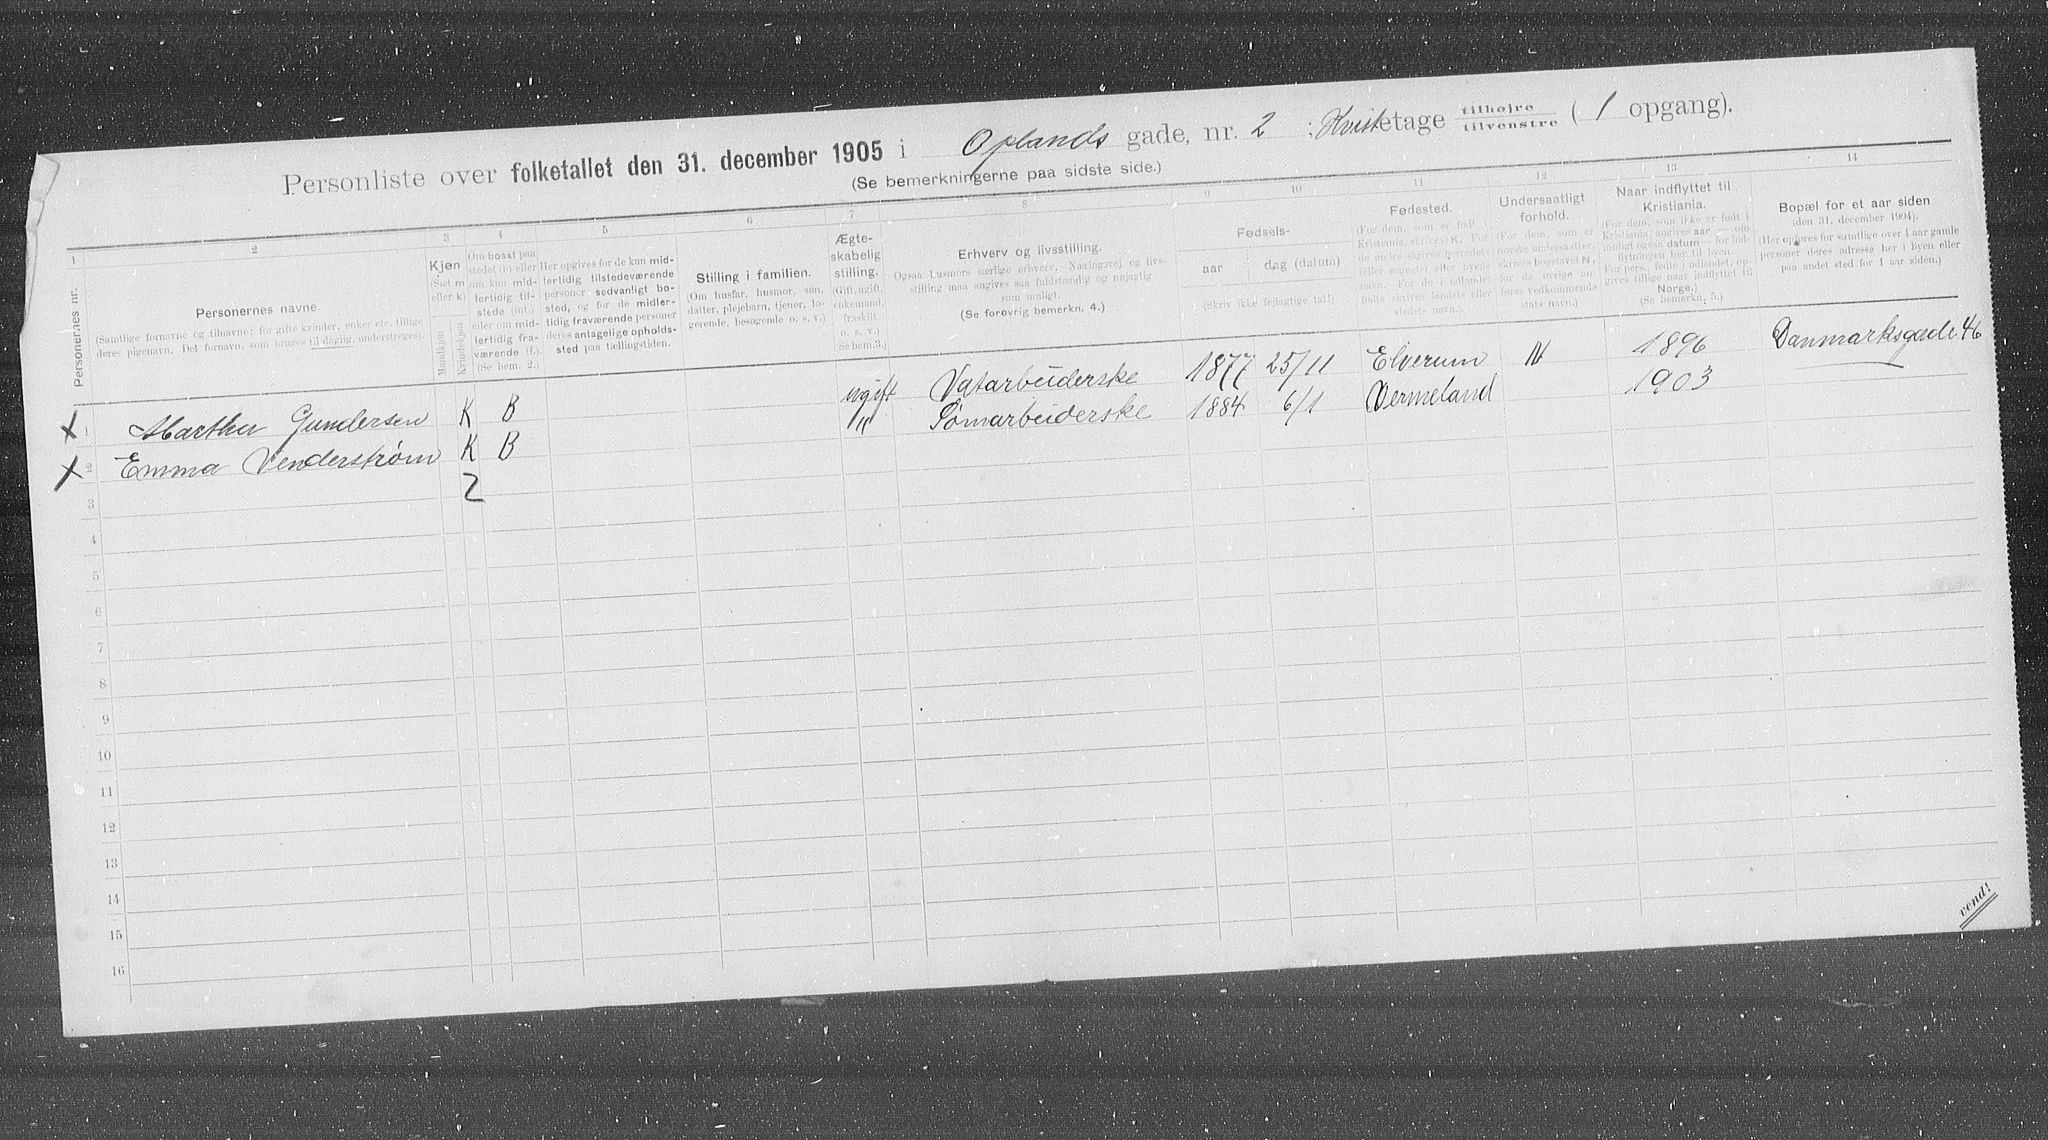 Personliste over folketallet den 31. december 1905 i Oplands gade, nr. 2 ; Kvist etage tilhøire tilvenstre ( 1 opgang).
(Se bemerkningerne paa sidste side.)
1 2 3 4 5 6 7 8 9 10 11 12 13 14
Personernes nr.
Personernes navne.
(Samtlige fornavne og tilnavne; for gifte kvinder, enker etc. tillige
deres pigenavn. Det fornavn, som bruges til daglig, understreges).
Kjøn
(Sæt m
eller k)
Mandkjøn
Kvindekjøn
Om bosat paa
stedet (b) eller
om kun mid-
lertidig til-
stede (mt.)
eller om mid-
lertidig fra-
værende (f.)
(Se bem. 2.)
Her opgives for de kun mid-
lertidig tilstedeværende
personer sedvanligt bo-
sted, og for de midler-
tidig fraværende personer
deres antagelige opholds-
sted paa tællingstiden.
Stilling i familien.
(Om husfar, husmor, søn,
datter, plejebarn, tjener, lo-
gerende, besøgende o. s. v.)
Ægte-
skabelig
stilling.
(Gift, ugift,
enkemand,
fraskilt
o. s. v.
Se bem.3.)
Erhverv og livsstilling.
Ogsaa Husmors særlige erhverv. Næringsvej og livs-
stilling maa angives saa fuldstændig og nøjagtig
som muligt.
(Se forøvrig bemerkn. 4.)
Fødsels-
aar
dag (datum)
(Skriv ikke fejlagtige tal!)
Fødested.
(For dem, som er født i
Kristiania, skrives: K. For
de andre skrives herredets
(eller sognets) eller byens
navn. For de i udlandet
fødte skrives landets eller
stedets navn.)
Undersaatligt
forhold.
(For dem, som er
norske undersaatter,
skrives bogstavet N,
for de øvrige an-
føres vedkommende
stats navn.)
Naar indflyttet til
Kristiania.
(For dem, som ikke er født i
Kristiania, angives aar — om
muligt ogsaa datum — for ind-
flytningen her til byen.
For pers., fødte i udlandet, op-
gives tillige naar indflyttet til
Norge.)
(Se bemerkn. 5.)
Bopæl for et aar siden
(den 31. december 1904).
(Her opføres for samtlige over 1 aar gamle
personer deres adresse her i byen eller
paa andet sted for 1 aar siden.)
x 1 Martha Gundersen K B ugift Vatarbeiderske 1877 25/11 Elverum N 1896 Danmarksgade 46
x 2 Emma Venderstrøm K B " Sømarbeiderske 1884 6/1 Vermeland 1903
3 2
4
5
6
7
8
9
10
11
12
13
14
15
16
vend!